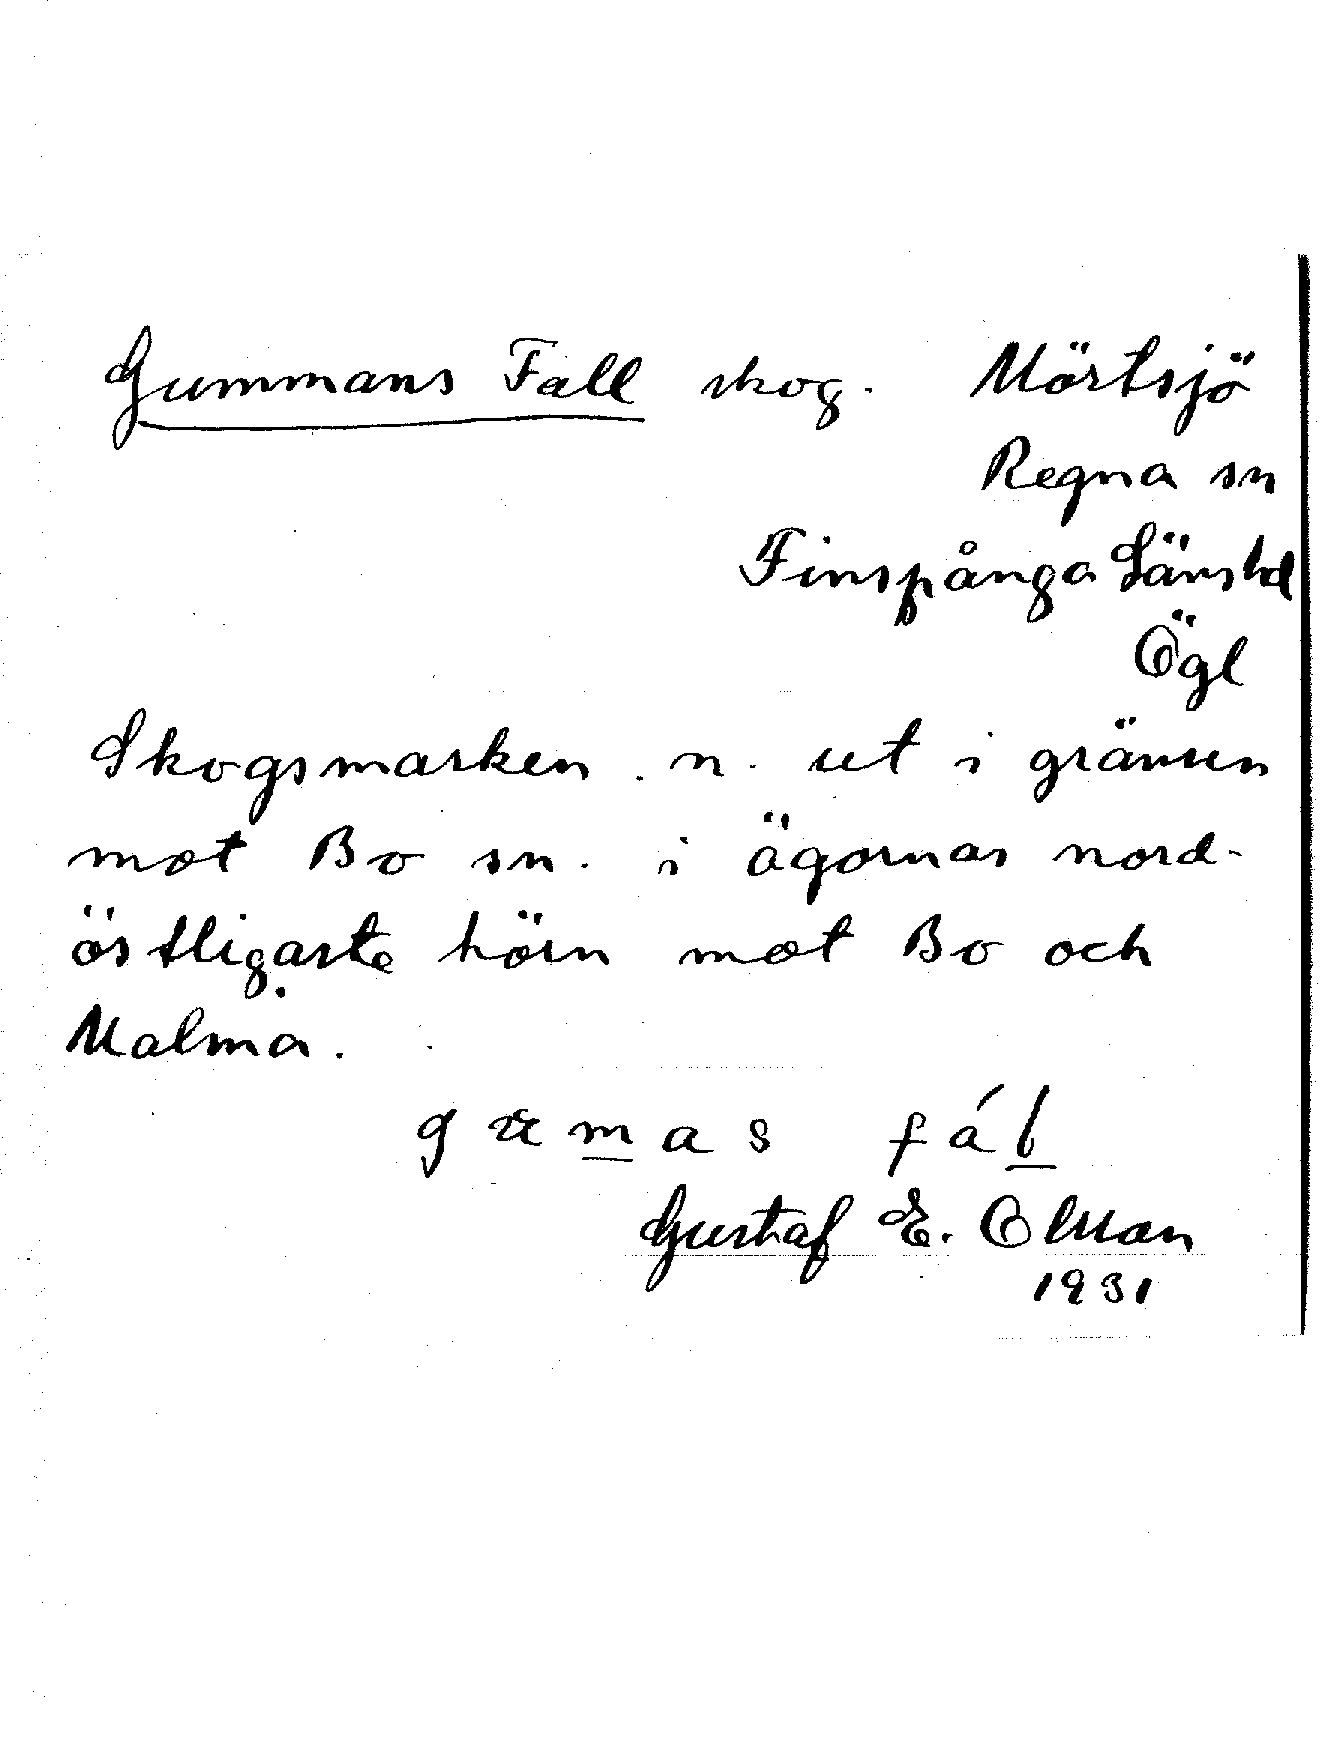 Gummans Fall skog. Mörtsjö
Regna sn
Finspånga Länshd
Ögl
Skogsmarken . n. ut i gränsen
mot Bo sn. i ägornas nord-
östligaste hörn mot Bo och
Malma.
mas fál
Gustaf E. Olman
1931